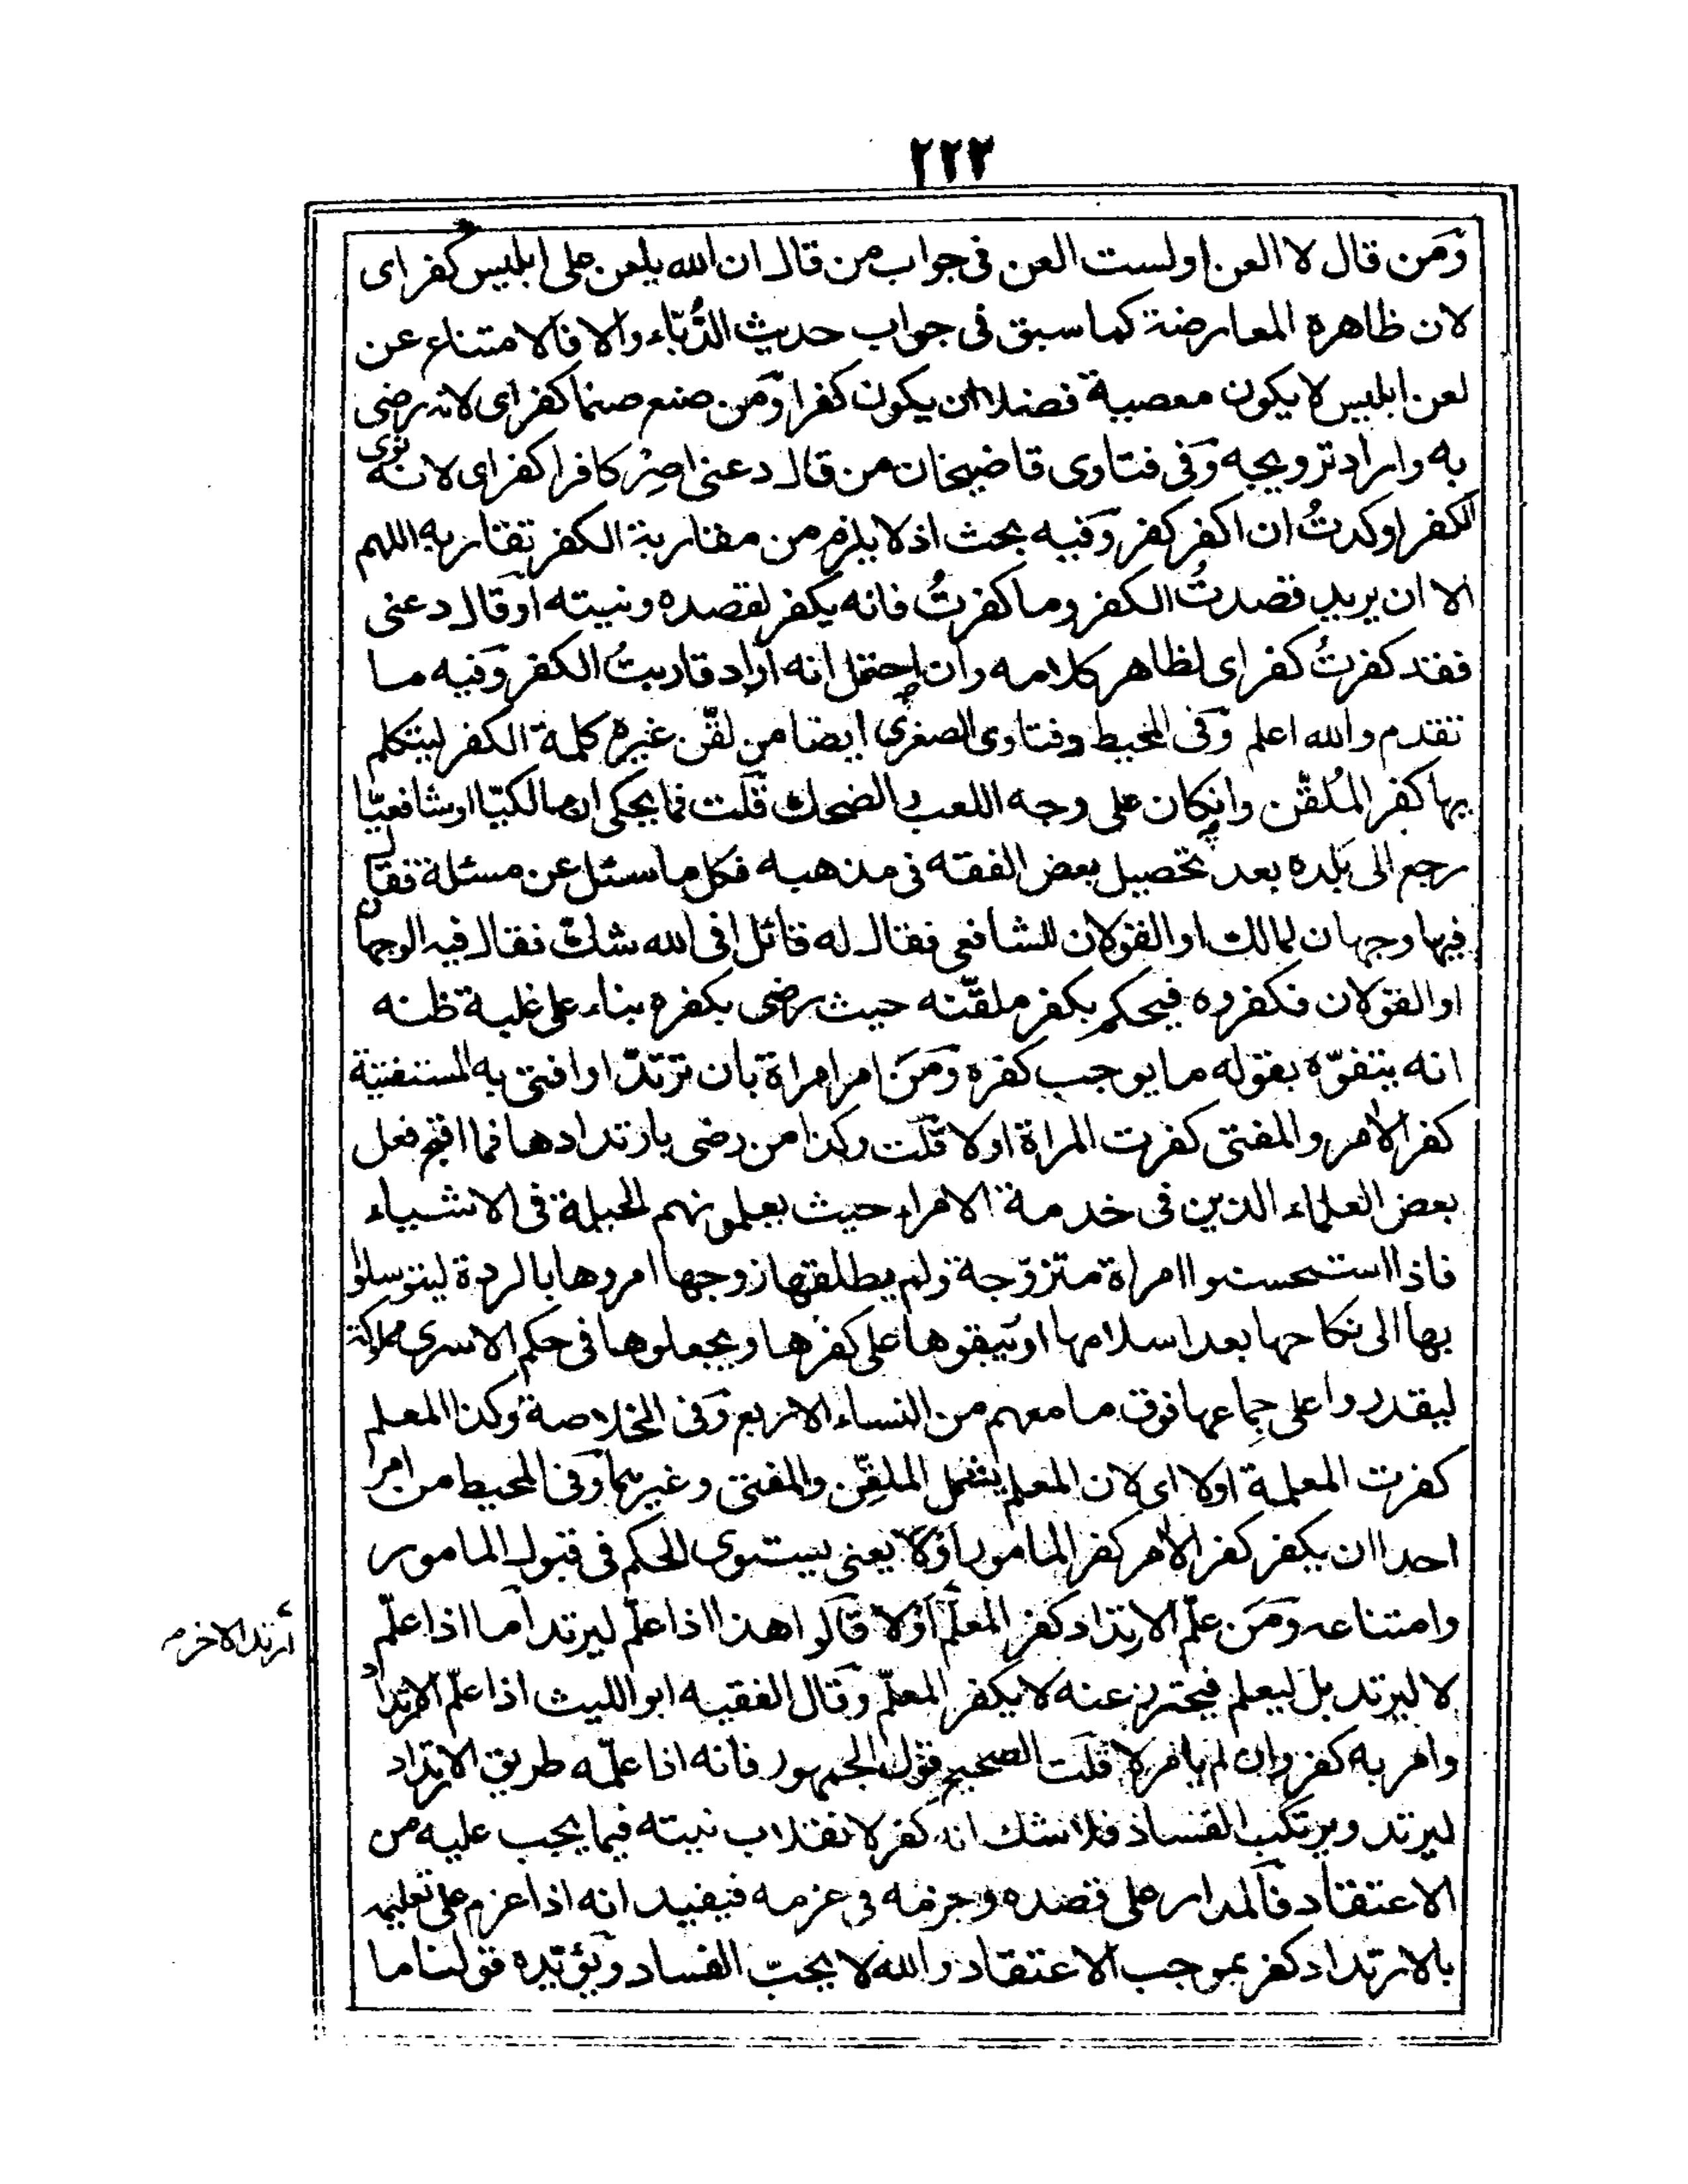 ٢٢٣
ومن قال لا العن اولست العن فى جواب من قال ان الله يلعن على ابليس كفر اى
لان ظاهره المعارضة كما سبق فى جواب حديث الدُّبّاء والا فالامتناع عن
لعن ابليس لا يكون معصية فضلا ان يكون كفرا ومن صنع صنما كفر اى لانه رضى
به واراد ترويجه وفى فتاوى قاضيخان من قال دعنى اصِرْ كافرا كفر اى لانه نوى
الكفر اوكدتُ ان اكفر كفر وفيه بحث اذ لا يلزم من مقاربة الكفر تقاربه اللهم
الا ان يريد قصدتُ الكفر وما كفرتُ فانه يكفر لقصده ونيته اوقال دعنى
فقد كفرتُ كفر اى لظاهر كلامه وان احتمل انه اراد قاربتُ الكفر وفيه ما
تقدم والله اعلم وفى المحيط وفتاوى الصغرى ايضا من لقّن غيره كلمة الكفر ليتكلم
بها كفر المُلقّن وانكان على وجه اللعب والضحك قلت فما يحكى ان مالكيّا اوشافعيّا
رجع الى بلده بعد تحصيل بعض الفقه فى مذهبه فكل ما سئل عن مسئلة فقال
فيها وجهان لمالك او القولان للشافعى فقال له قائل افى الله شكّ فقال فيه الوجهان
او القولان فكفروه فيحكم بكفر ملقّنه حيث رضى بكفره بناء على غلبة ظنه
انه يتفوّه بقوله ما يوجب كفره ومن امر امراة بان ترتدّ او افتى به المستفتية
كفر الآمر والمفتى كفرت المراة اولا قلت وكذا من رضى بارتدادها فما اقبح فعل
بعض العلماء الذين فى خدمة الامراء حيث يعلمونهم الحيلة فى الاشياء
فاذا استحسنوا امراة متزوّجة ولم يطلقها زوجها امروها بالردة ليتوسلوا
بها الى نكاحها بعد اسلامها او يبقوها على كفرها ويجعلوها فى حكم الاسرى مملوكة
ليقدروا على جِماعها فوق ما معهم من النساء الاربع وفى الخلاصة وكذا المعلم
كفرت المعلمة اولا اى لان المعلم يشمل الملقِّن والمفتى وغيرهما وفى المحيط من امر
احدا ان يكفر كفر الآمر كفر المامور اوْلا يعنى يستوى الحكم فى قبول المامور
وامتناعه ومن علّم الارتداد كفر المعلّم اوْلا قالوا هذا اذا علّم ليرتد اما اذا علّم
ارتد الاخر م
لا ليرتد بل ليعلم فيحترز عنه لا يكفر المعلّم وقال الفقيه ابو الليث اذا علّم الارتداد
وامر به كفر وان لم يامر لا قلت الصحيح قول الجمهور فانه اذا علّمه طريق الارتداد
ليرتد ويرتكب الفساد فلا شك انه كفر لانقلاب نيته فيما يجب عليه من
الاعتقاد فالمدار على قصده وجزمه فى عزمه فيفيد انه اذا عزم على تعليمه
بالارتداد كفر بموجب الاعتقاد والله لا يحبّ الفساد ويؤيّده قولنا ما